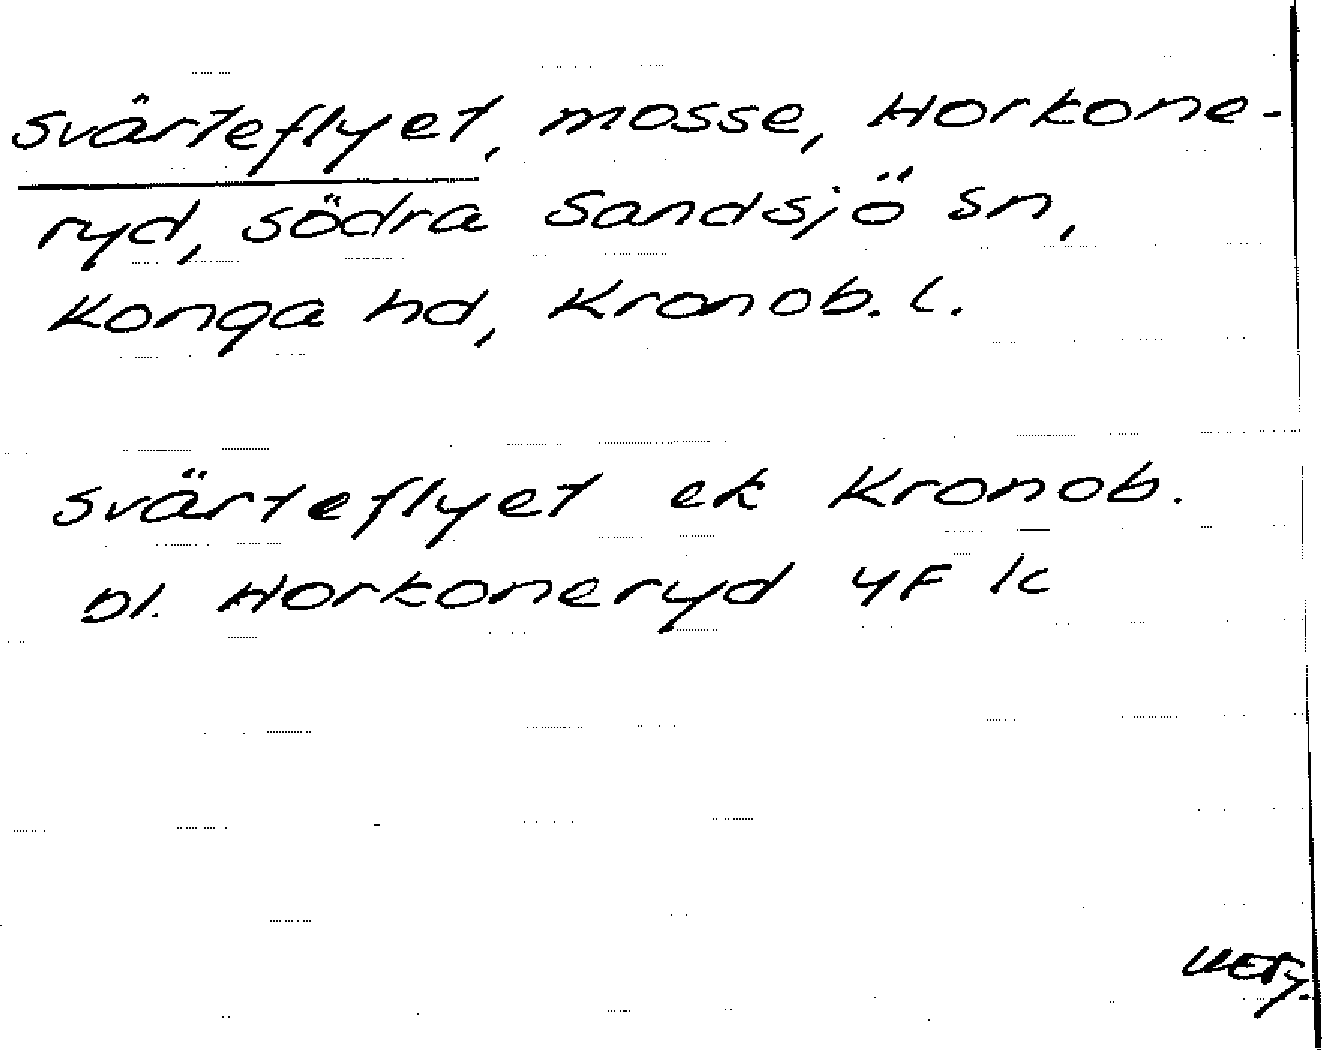 Svärteflyet, mosse, Horkone-
ryd, södra Sandsjö sn,
Konga hd, Kronob. l.
Svärteflyet ek Kronob.
bl. Horkoneryd 4F 1c